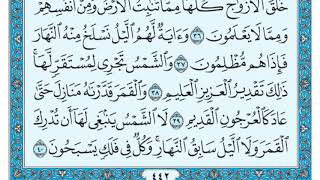 خَلَقَ ٱلْأَزْوَٰجَ كُلَّهَا مِمَّا تُنۢبِتُ ٱلْأَرْضُ وَمِنْ أَنفُسِهِمْ
وَمِمَّا لَا يَعْلَمُونَ ٣٦ وَءَايَةٌ لَّهُمُ ٱلَّيْلُ نَسْلَخُ مِنْهُ ٱلنَّهَارَ
فَإِذَا هُم مُّظْلِمُونَ ٣٧ وَٱلشَّمْسُ تَجْرِى لِمُسْتَقَرٍّ لَّهَا
ذَٰلِكَ تَقْدِيرُ ٱلْعَزِيزِ ٱلْعَلِيمِ ٣٨ وَٱلْقَمَرَ قَدَّرْنَٰهُ مَنَازِلَ حَتَّىٰ
عَادَ كَٱلْعُرْجُونِ ٱلْقَدِيمِ ٣٩ لَا ٱلشَّمْسُ يَنۢبَغِى لَهَآ أَن تُدْرِكَ
ٱلْقَمَرَ وَلَا ٱلَّيْلُ سَابِقُ ٱلنَّهَارِ وَكُلٌّ فِى فَلَكٍ يَسْبَحُونَ ٤٠
٤٤٢